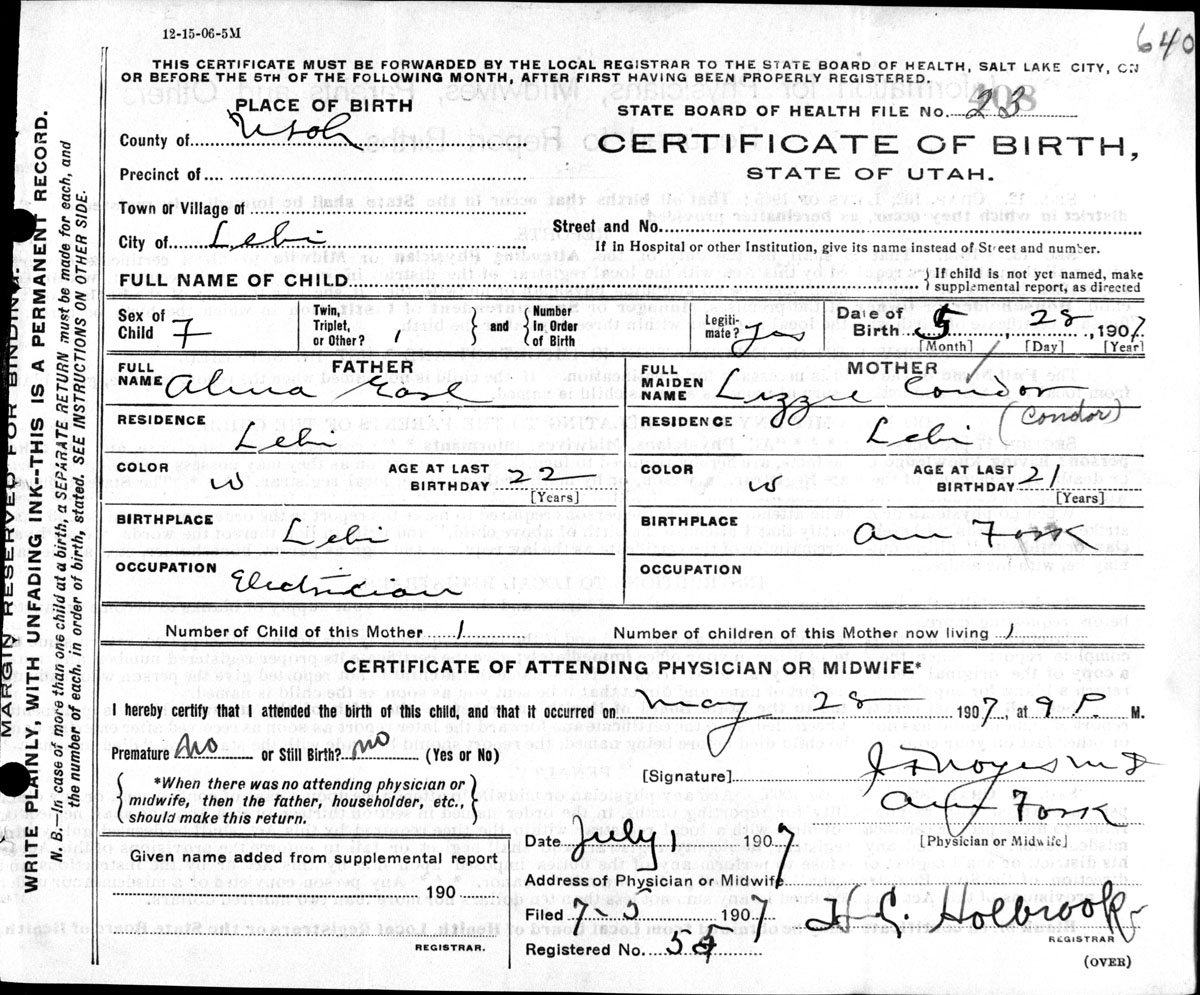 12-15-06-5M
640
THIS CERTIFICATE MUST BE FORWARDED BY THE LOCAL REGISTRAR TO THE STATE BOARD OF HEALTH, SALT LAKE CITY, ON
OR BEFORE THE 5TH OF THE FOLLOWING MONTH, AFTER FIRST HAVING BEEN PROPERLY REGISTERED.
PLACE OF BIRTH
STATE BOARD OF HEALTH FILE No. 23
County of Utah
CERTIFICATE OF BIRTH,
Precinct of
STATE OF UTAH.
Town or Village of
City of Lehi
Street and No.
If in Hospital or other Institution, give its name instead of Street and number.
FULL NAME OF CHILD
If child is not yet named, make
supplemental report, as directed
Sex of Child F
Twin, Triplet, or Other? 1
and
Number in Order of Birth
Legitimate? yes
Date of Birth 5, 28, 1907
[Month] [Day] [Year]
FATHER
MOTHER
FULL NAME Alma
FULL MAIDEN NAME Lizzie Condor
(Condor)
RESIDENCE Lehi
RESIDENCE Lehi
COLOR w
AGE AT LAST BIRTHDAY 22
[Years]
COLOR w
AGE AT LAST BIRTHDAY 21
[Years]
BIRTHPLACE Lehi
BIRTHPLACE Am Fork
OCCUPATION Electrician
OCCUPATION
Number of Child of this Mother 1
Number of children of this Mother now living 1
CERTIFICATE OF ATTENDING PHYSICIAN OR MIDWIFE*
I hereby certify that I attended the birth of this child, and that it occurred on May 28 1907, at 9 P M.
Premature no or Still Birth? no (Yes or No)
[Signature] Noyes MD
*When there was no attending physician or
midwife, then the father, householder, etc.,
should make this return.
Am Fork
Date July 7
[Physician or Midwife]
Given name added from supplemental report
190
Address of Physician or Midwife
Filed 7-5 1907
H C Holbrook
REGISTRAR
REGISTRAR.
Registered No.
(OVER)
MARGIN RESERVED FOR BINDING.
WRITE PLAINLY, WITH UNFADING INK—THIS IS A PERMANENT RECORD.
N. B. In case of more than one child at a birth, a SEPARATE RETURN must be made for each, and
the number of each, in order of birth, stated. SEE INSTRUCTIONS ON OTHER SIDE.